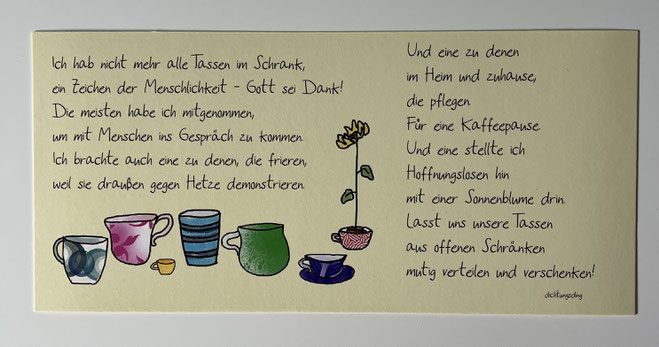 Ich hab nicht mehr alle Tassen im Schrank,
ein Zeichen der Menschlichkeit - Gott sei Dank!
Die meisten habe ich mitgenommen,
um mit Menschen ins Gespräch zu kommen.
Ich brachte auch eine zu denen, die frieren,
weil sie draußen gegen Hetze demonstrieren.
Und eine zu denen
im Heim und zuhause,
die pflegen.
Für eine Kaffeepause.
Und eine stellte ich
Hoffnungslosen hin
mit einer Sonnenblume drin.
Lasst uns unsere Tassen
aus offenen Schränken
mutig verteilen und verschenken!
dichtungsding